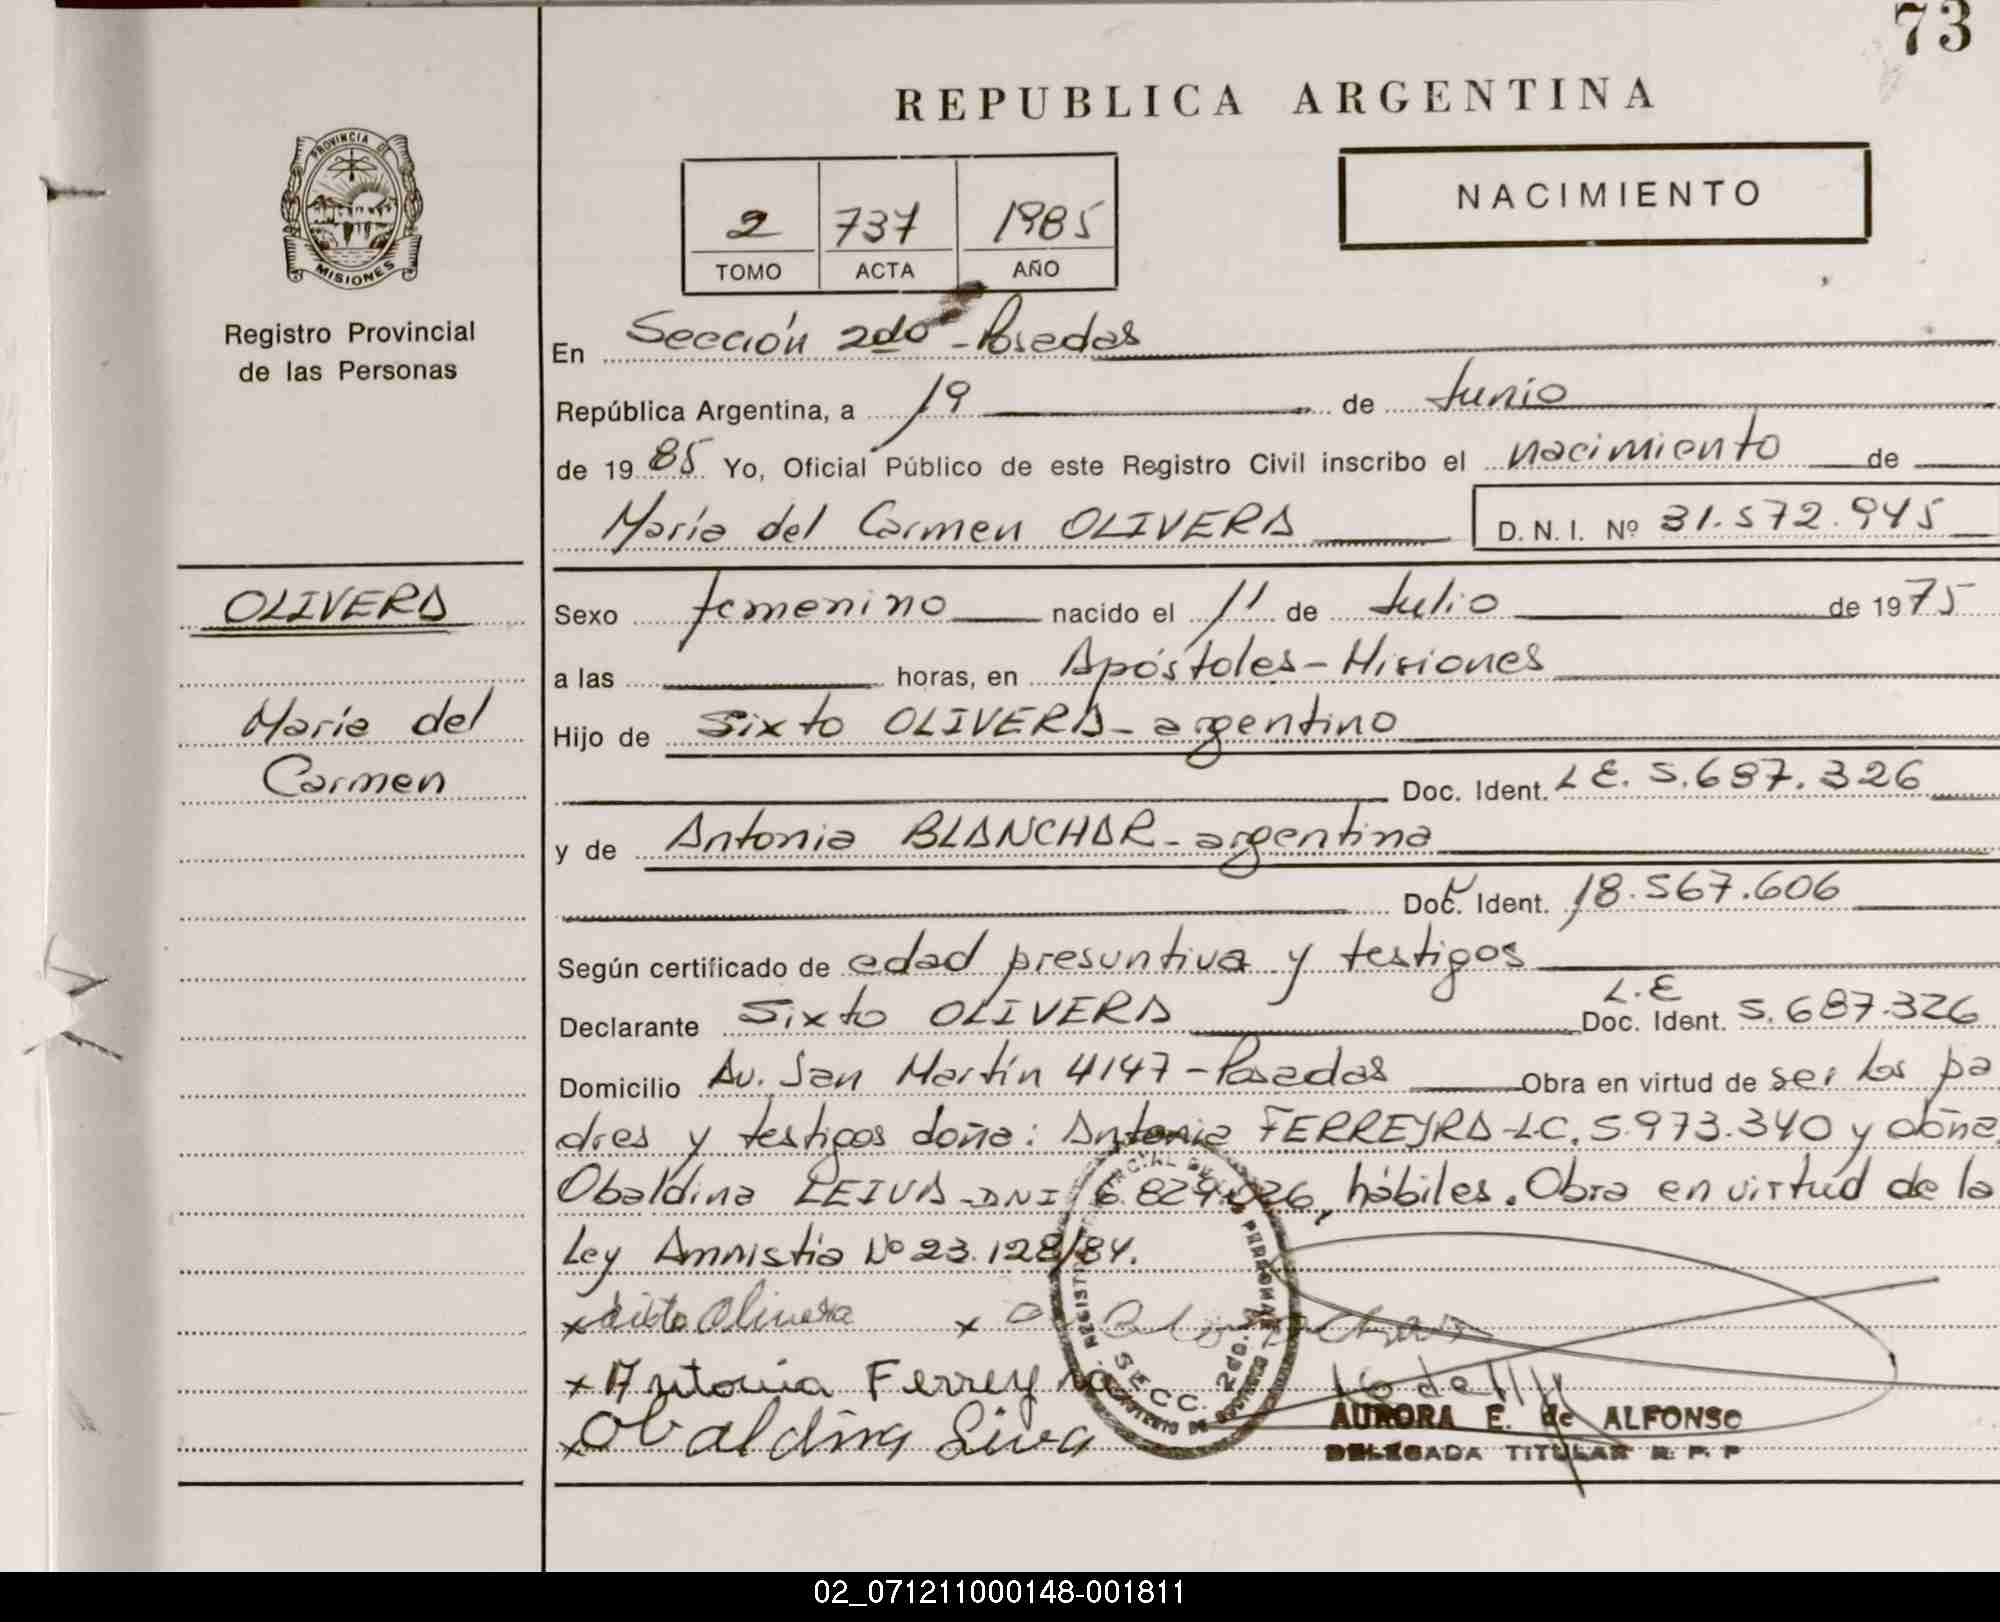 73
REPUBLICA ARGENTINA
PROVINCIA DE
MISIONES
Registro Provincial
de las Personas
2 737 1985
TOMO ACTA AÑO
NACIMIENTO
En Sección 2do - Posadas
República Argentina, a 19 de Junio
de 1985 Yo, Oficial Público de este Registro Civil inscribo el nacimiento de
María del Carmen OLIVERA D. N. I. Nº 31.572.945
OLIVERA
María del
Carmen
Sexo femenino nacido el 11 de Julio de 1975
a las horas, en Apóstoles - Misiones
Hijo de Sixto OLIVERA - argentino
Doc. Ident. L E. 5.687.326
y de Antonia BLANCHAR - argentina
Doc. Ident. 18.567.606
Según certificado de edad presuntiva y testigos
Declarante Sixto OLIVERA L.E Doc. Ident. 5.687.326
Domicilio Av. San Martín 4147 - Posadas Obra en virtud de ser los pa
dres y testigos doña: Antonia FERREYRA - LC. 5.973.340 y doña
Obaldina LEIVA - DNI 6.829.026, hábiles. Obra en virtud de la
Ley Amnistia Nº 23.128/84.
x Sixto Olivera x
x Antonia Ferreyra
x Obaldina Leiva
SECC. 2do.
AURORA E. de ALFONSO
DELEGADA TITULAR R. P. P
02_071211000148-001811